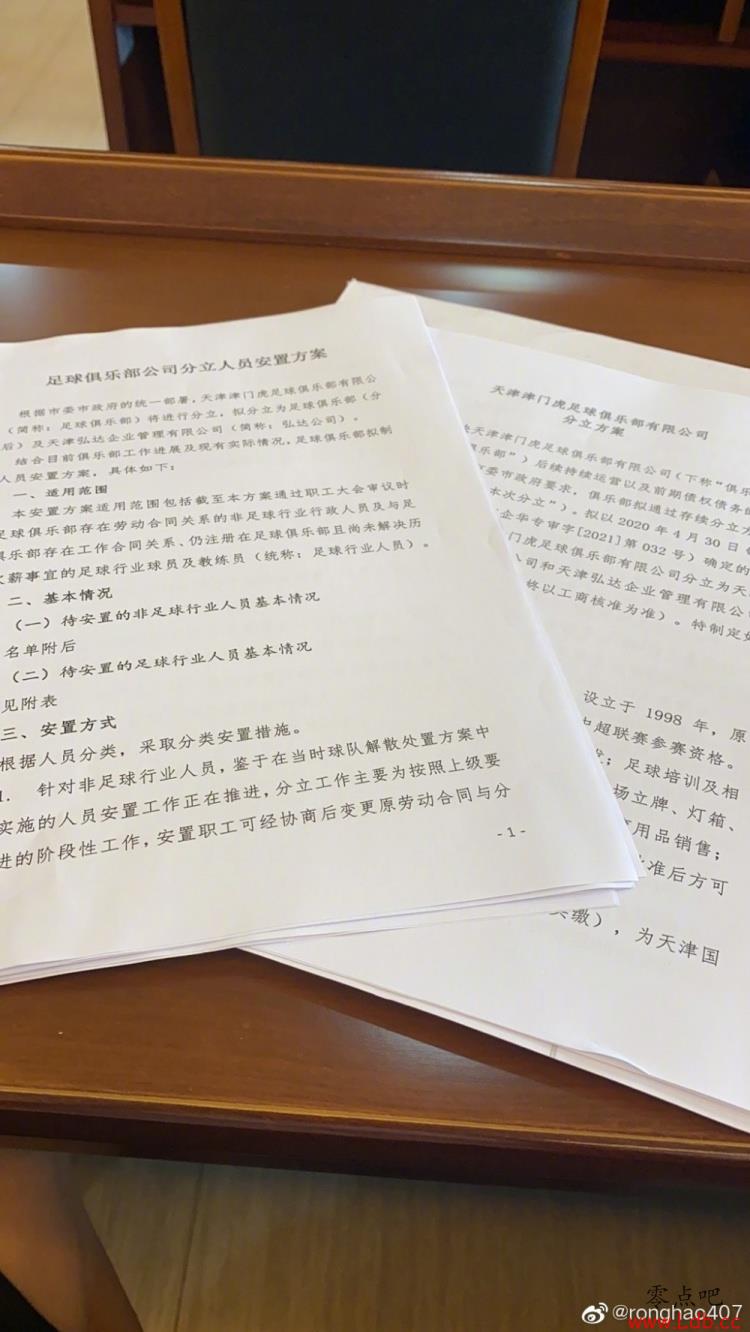 足球俱乐部公司分立人员安置方案
根据市委市政府的统一部署，天津津门虎足球俱乐部有限公
（简称：足球俱乐部）将进行分立，拟分立为足球俱乐部（分
后）及天津弘达企业管理有限公司（简称：弘达公司）。
结合目前俱乐部工作进展及现有实际情况，足球俱乐部拟制
人员安置方案，具体如下：
一、适用范围
本安置方案适用范围包括截至本方案通过职工大会审议时
足球俱乐部存在劳动合同关系的非足球行业行政人员及与足
俱乐部存在工作合同关系、仍注册在足球俱乐部且尚未解决历
欠薪事宜的足球行业球员及教练员（统称：足球行业人员）。
二、基本情况
（一）待安置的非足球行业人员基本情况
名单附后
（二）待安置的足球行业人员基本情况
见附表
三、安置方式
根据人员分类，采取分类安置措施。
1. 针对非足球行业人员，鉴于在当时球队解散处置方案中
实施的人员安置工作正在推进，分立工作主要为按照上级要
进的阶段性工作，安置职工可经协商后变更原劳动合同与分
-1-
天津津门虎足球俱乐部有限公司
分立方案
天津津门虎足球俱乐部有限公司（下称“俱
乐部”）后续持续运营以及前期债权债务的
委市政府要求，俱乐部拟通过存续分立方
本次分立”）。拟以 2020 年 4 月 30 日
企华专审字[2021]第 032 号）确定的
门虎足球俱乐部有限公司分立为天
公司和天津弘达企业管理有限公司
终以工商核准为准）。特制定如
设立于 1998 年，原
中超联赛参赛资格。
；足球培训及相
场立牌、灯箱、
用品销售；
准后方可
实缴），为天津国
零点吧
@ronghao407
www.Ldb.cc